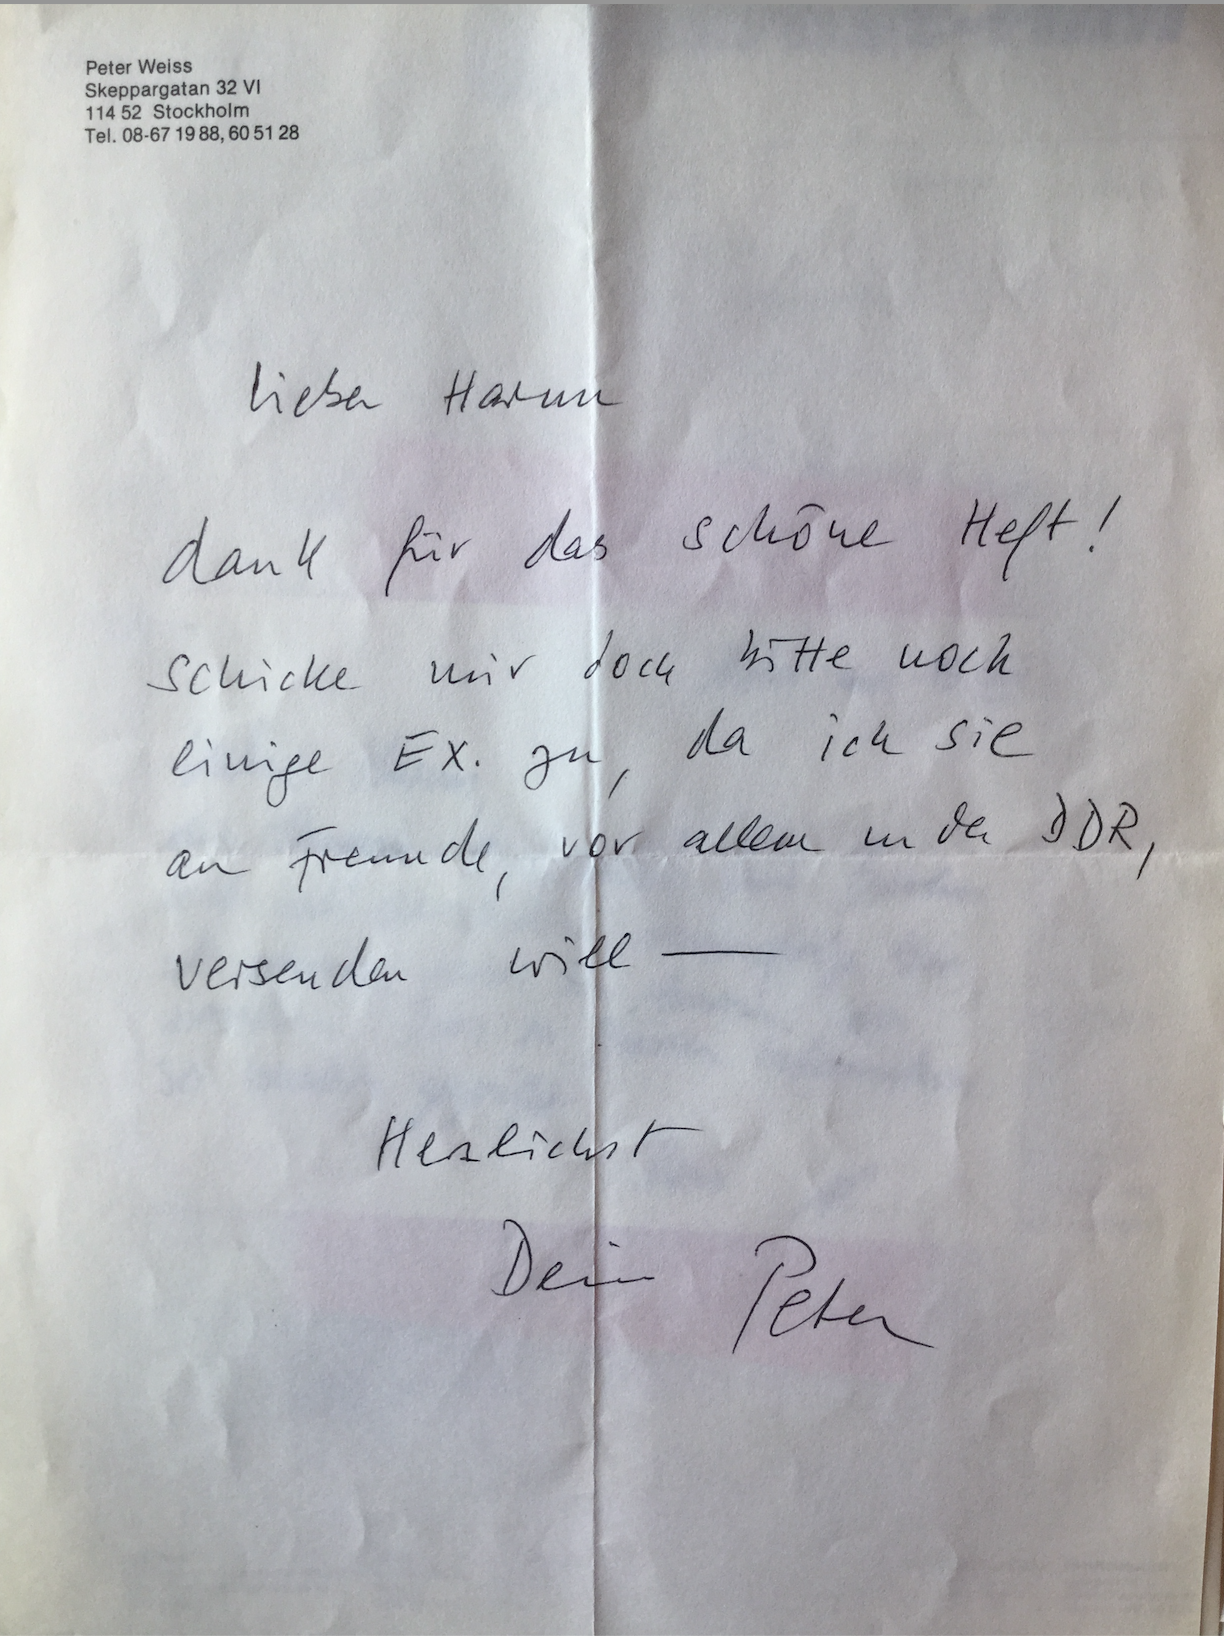 Peter Weiss
Skeppargatan 32 VI
114 52 Stockholm
Tel. 08-67 19 88, 60 51 28
lieber Harun
dank für das schöne Heft!
schicke mir doch bitte noch
einige Ex. zu, da ich sie
an Freunde, vor allem in der DDR,
versenden will —
Herzlichst
Dein Peter